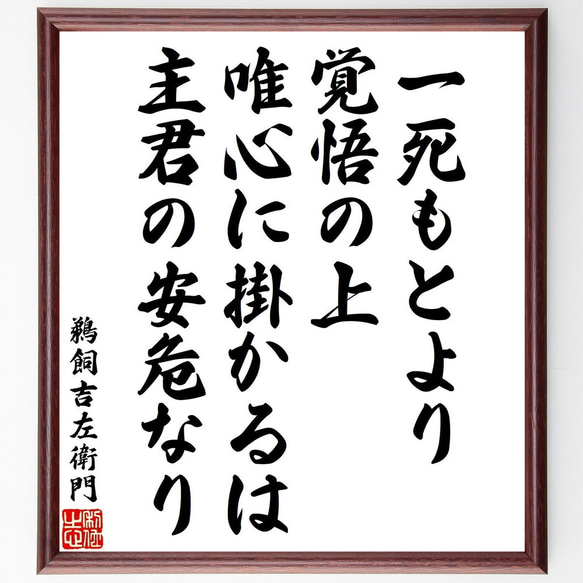 一死もとより
覚悟の上
唯心に掛かるは
主君の安危なり
鵜飼吉左衛門